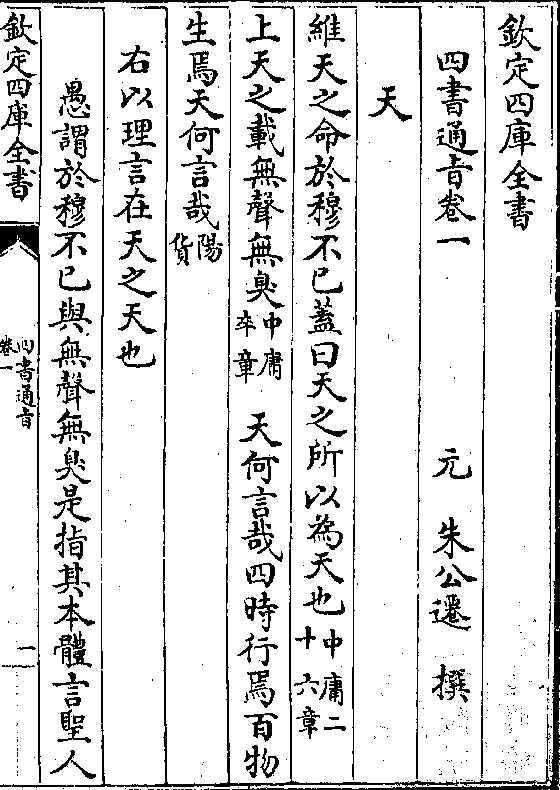 欽定四庫全書
四書通旨卷一
元 朱公遷 撰
天
維天之命於穆不已蓋曰天之所以為天也中庸二十六章
上天之載無聲無臭中庸卒章 天何言哉四時行焉百物
生焉天何言哉陽貨
右以理言在天之天也
愚謂於穆不已與無聲無臭是指其本體言聖人
欽定四庫全書
四書通旨
卷一
一